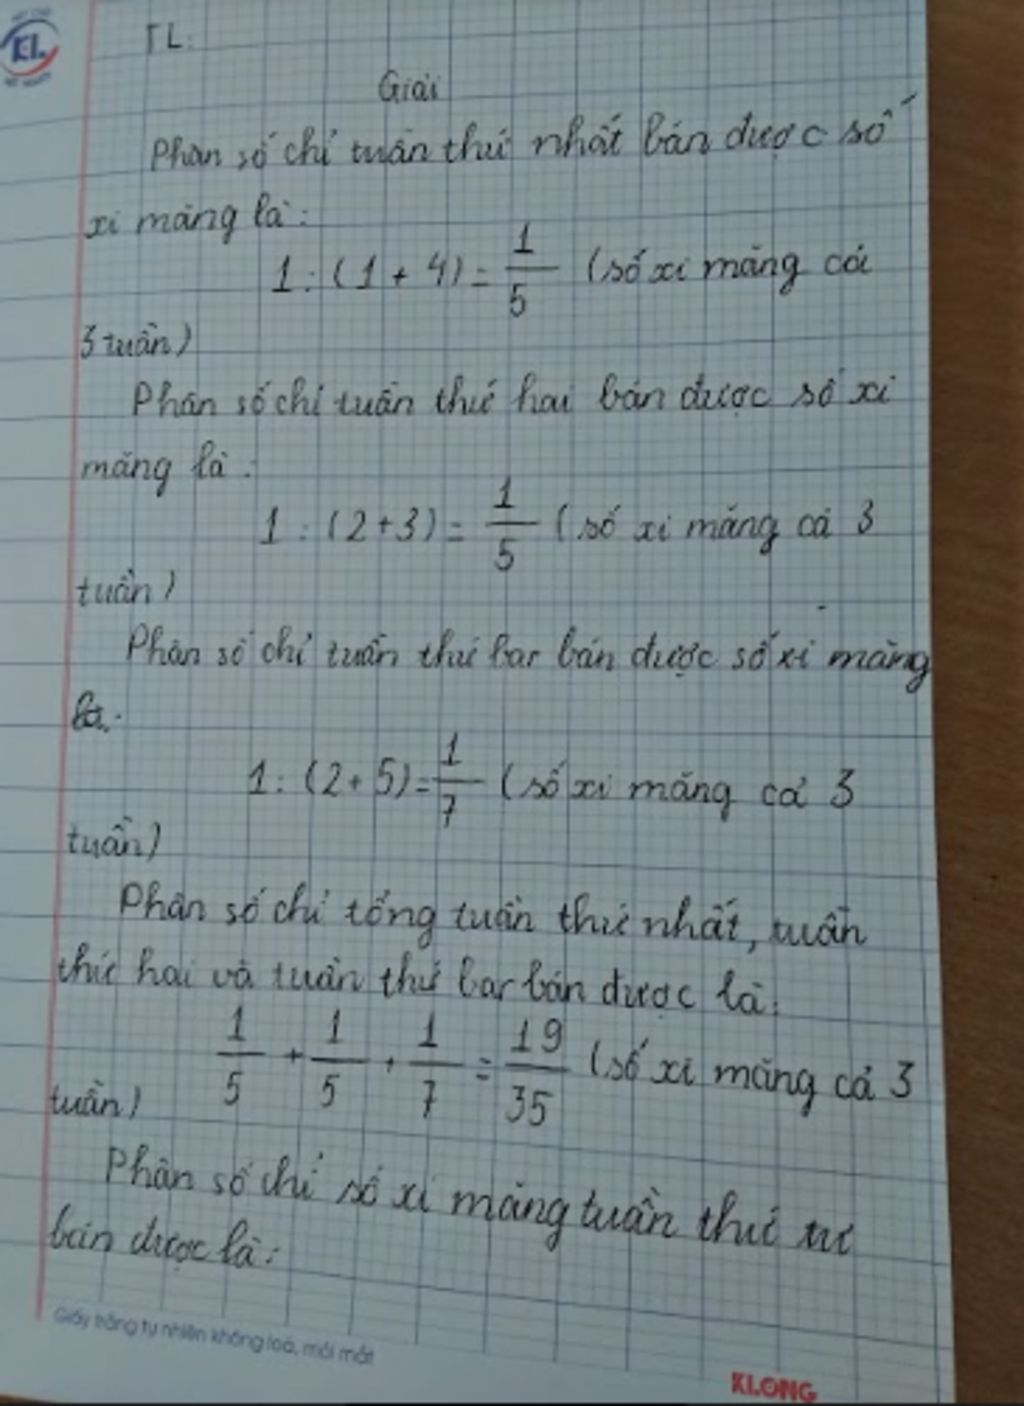 KL
TL:
Giải
Phân số chỉ tuần thứ nhất bán được số
xi măng là:
1 : (1 + 4) = 1/5 (số xi măng cả
3 tuần)
Phân số chỉ tuần thứ hai bán được số xi
măng là:
1 : (2+3) = 1/5 (số xi măng cả 3
tuần)
Phân số chỉ tuần thứ bar bán được số xi măng
là:
1 : (2+5) = 1/7 (số xi măng cả 3
tuần)
Phân số chỉ tổng tuần thứ nhất, tuần
thứ hai và tuần thứ bar bán được là:
1/5 + 1/5 + 1/7 = 19/35 (số xi măng cả 3
tuần)
Phân số chỉ số xi măng tuần thứ tư
bán được là:
Giấy trắng tự nhiên không loá, mỏi mắt
KLONG